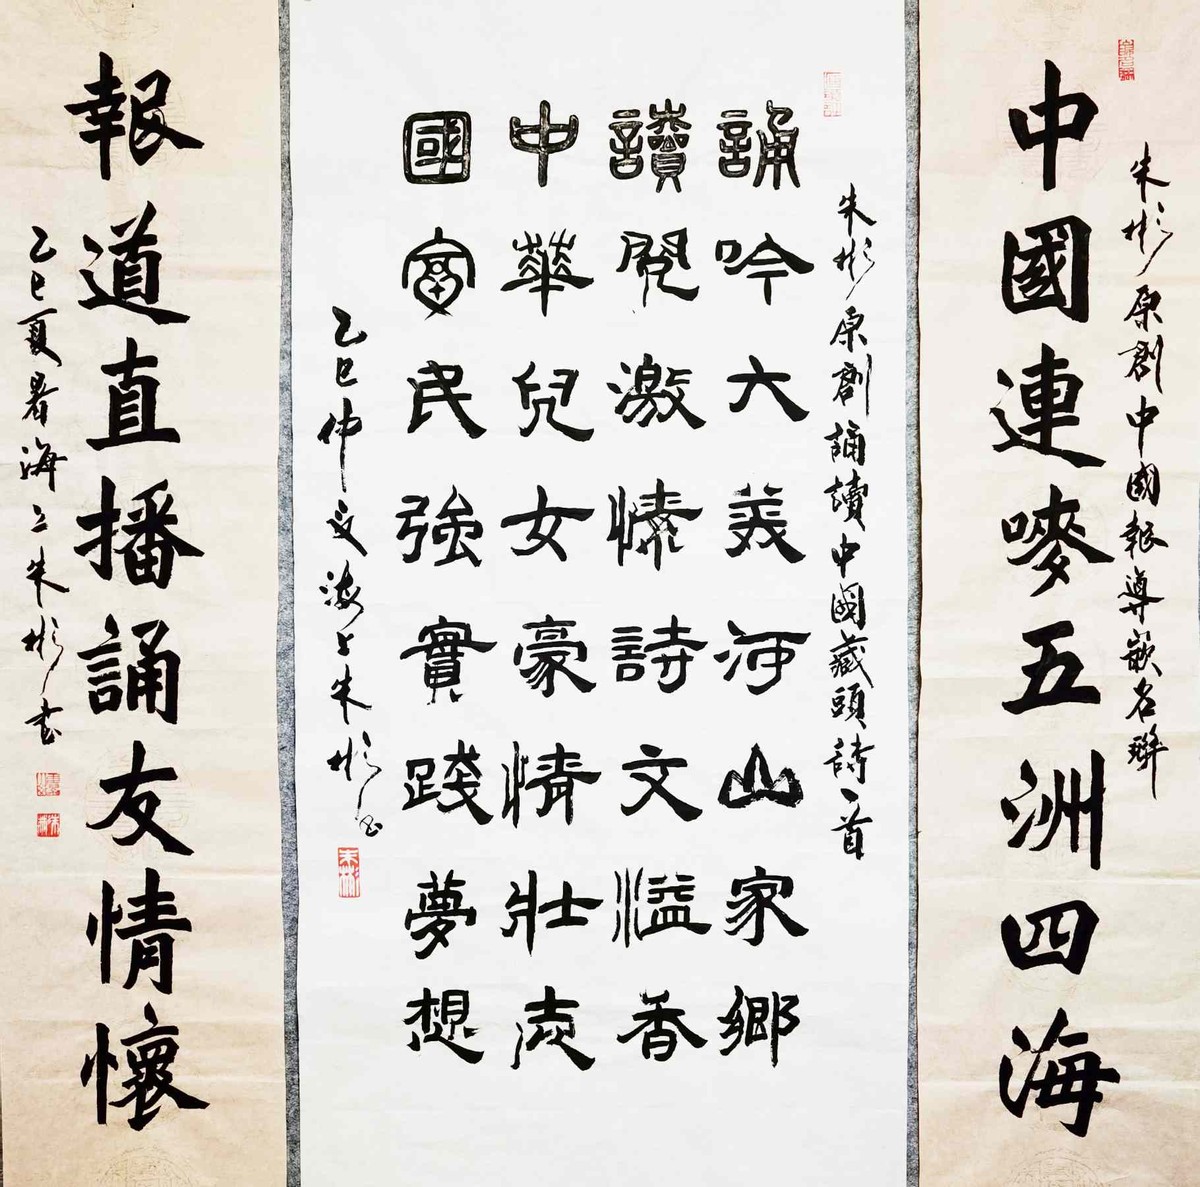 朱彬原創中國報導嵌名聯
中國連嘜五洲四海
朱彬原創誦讀中國藏頭詩一首
誦吟大美河山家鄉
讀閱激愫詩文溢香
中華兒女豪情壯志
國富民強實踐夢想
乙巳仲夏海上朱彬書
朱彬
報道直播誦友情懷
乙巳夏暑海上朱彬書